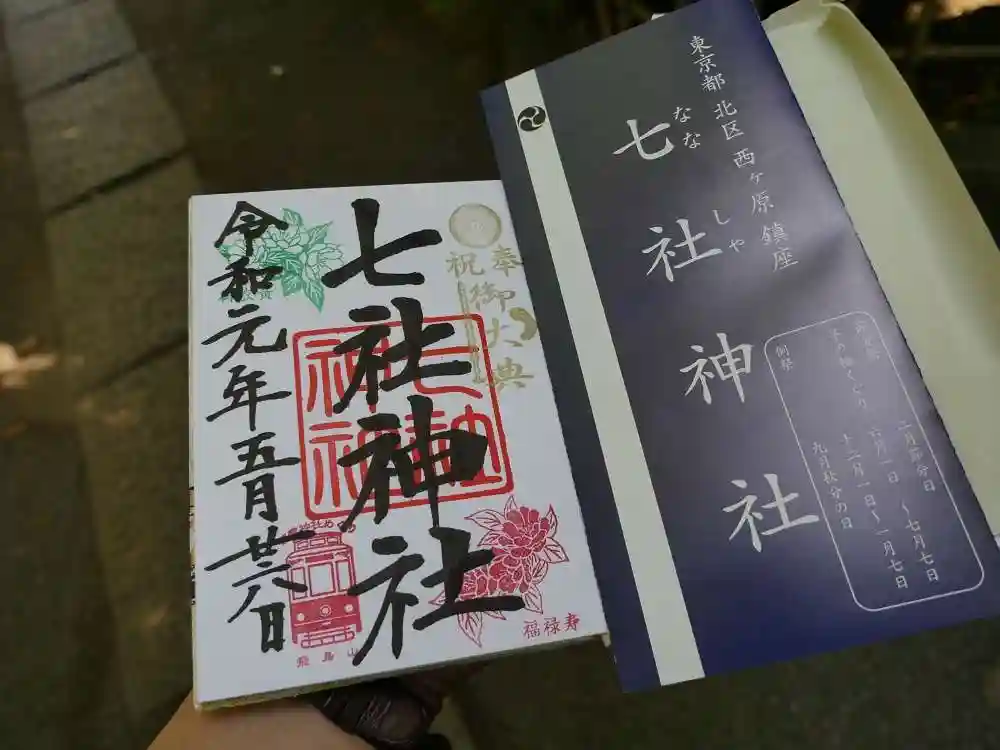 奉祝 御大典
七社神社
令和元年五月廿八日
福禄寿
飛鳥山
東京都 北区 西ヶ原 鎮座
七社神社
なな しゃ
二月節分日
茅の輪くぐり 六月一日 ～七月七日
十二月一日～一月七日
例祭 九月秋分の日